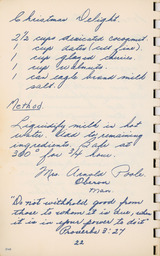 Christmas Delight.
2½ cups desicated cocoanut
1 cup dates (cut fine).
1 cup glazed cherries.
1 cup walnuts.
1 can eagle brand milk
salt.
Method.
Liquidify milk in hot
water. Add by remaining
ingredients. Bake at
300° for ¾ hour.
Mrs. Arnold Poole.
Oberon
Man.
"Do not withhold good from
those to whom it is due, when
it is in your power to do it"
Proverbs 3:27
22